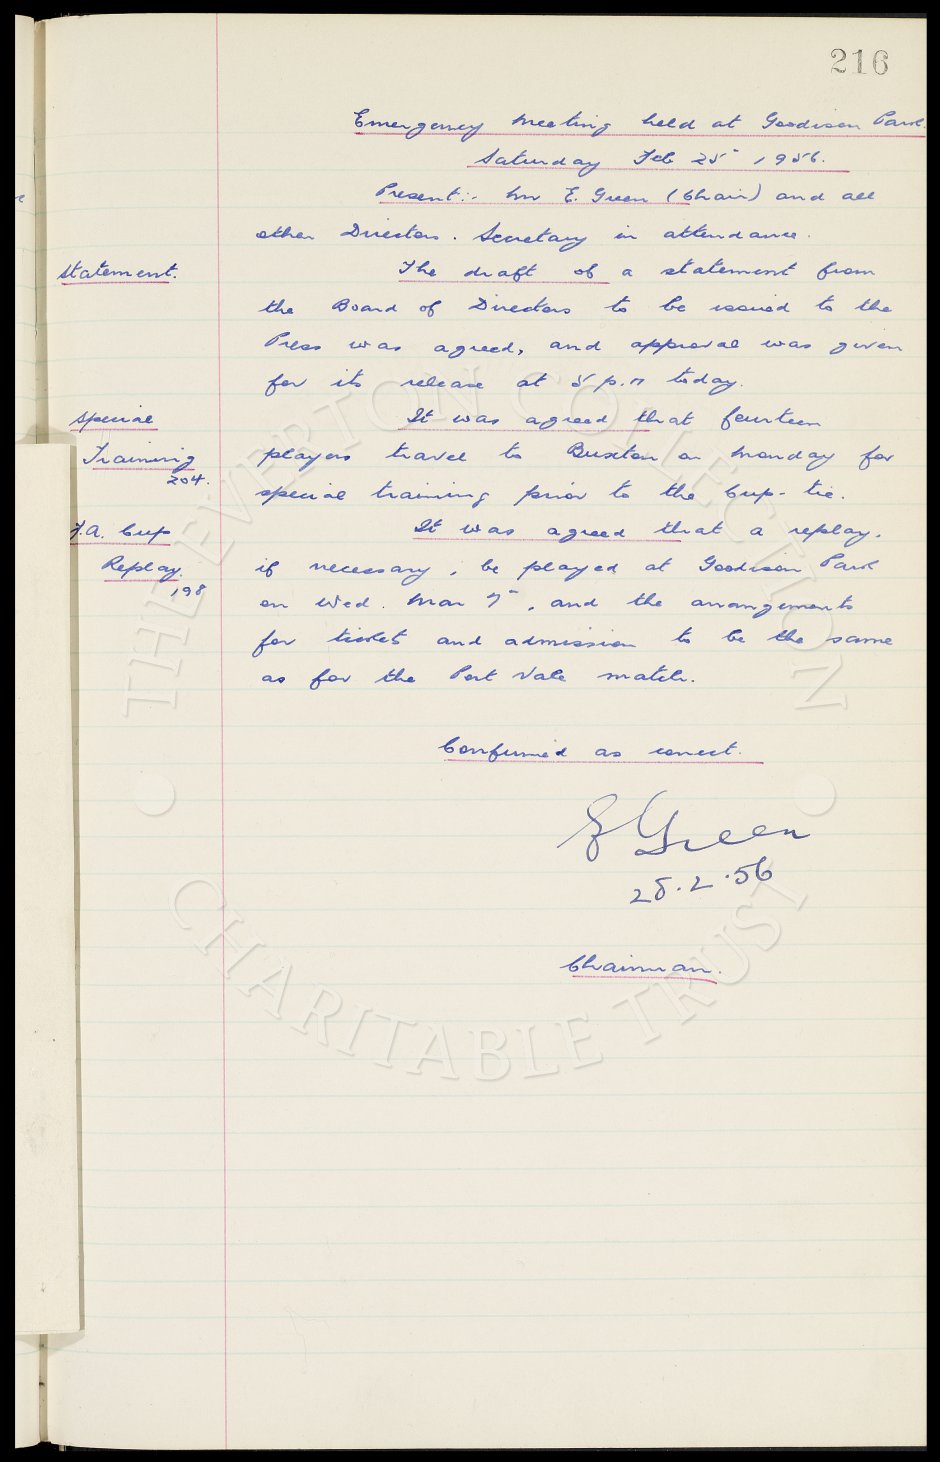 216
Emergency Meeting held at Goodison Park
Saturday Feb 25" 1956.
Present:- Mr E. Green (Chair) and all
other Directors. Secretary in attendance.
Statement.
The draft of a statement from
the Board of Directors to be issued to the
Press was agreed, and approval was given
for its release at 5 p.m today.
Special
Training
204.
It was agreed that fourteen
players travel to Buxton on Monday for
special training prior to the Cup-tie.
F.A. Cup
Replay.
198
It was agreed that a replay,
if necessary, be played at Goodison Park
on Wed. Mar 7", and the arrangements
for ticket and admission to be the same
as for the Port Vale match.
Confirmed as correct.
E Green
28.2.56
Chairman.
THE EVERTON COLLECTION
CHARITABLE TRUST